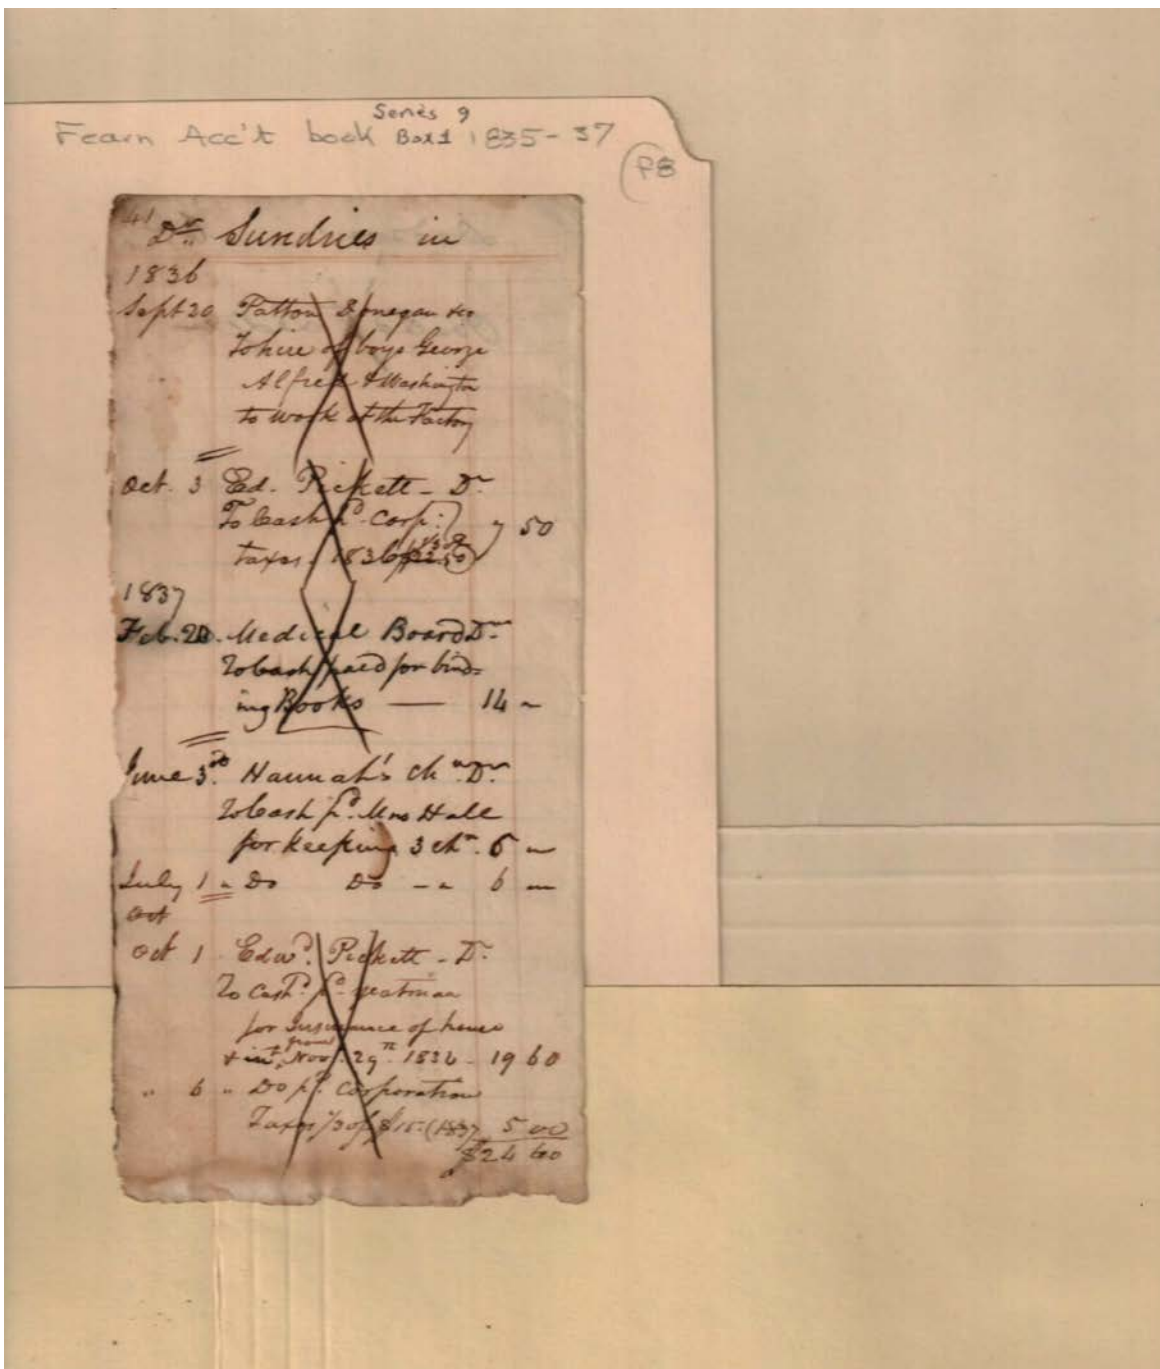 Series 9
Fearn Acc't book Box 1 1835-37
P8
41
Dr. Sundries in
1836
Sept 20 Patton Donegan &co
To hire of boys George
Alfred & Washington
to work at the Factory
Oct. 3 Ed. Pickett - Dr
To Cash pd. Corp:
taxes. 1836 1/3 of $22.50 7 50
1837
Feb. 20. Medical Board Dr
To Cash paid for bind-
ing Books — 14 "
June 3rd Hannah's chn Dr
To Cash pd. Mrs Hall
for keeping 3 chn. 6 "
July 1 " Do Do - " 6 "
Oct
Oct 1 Edwd. Pickett - Dr
To Cash pd. Yeatman
for Insurance of house
& int from Nov. 29th 1836 - 19 60
" 6 " Do pd. Corporation
Taxes 1/3 of $15 (1837 5 00
$24 60